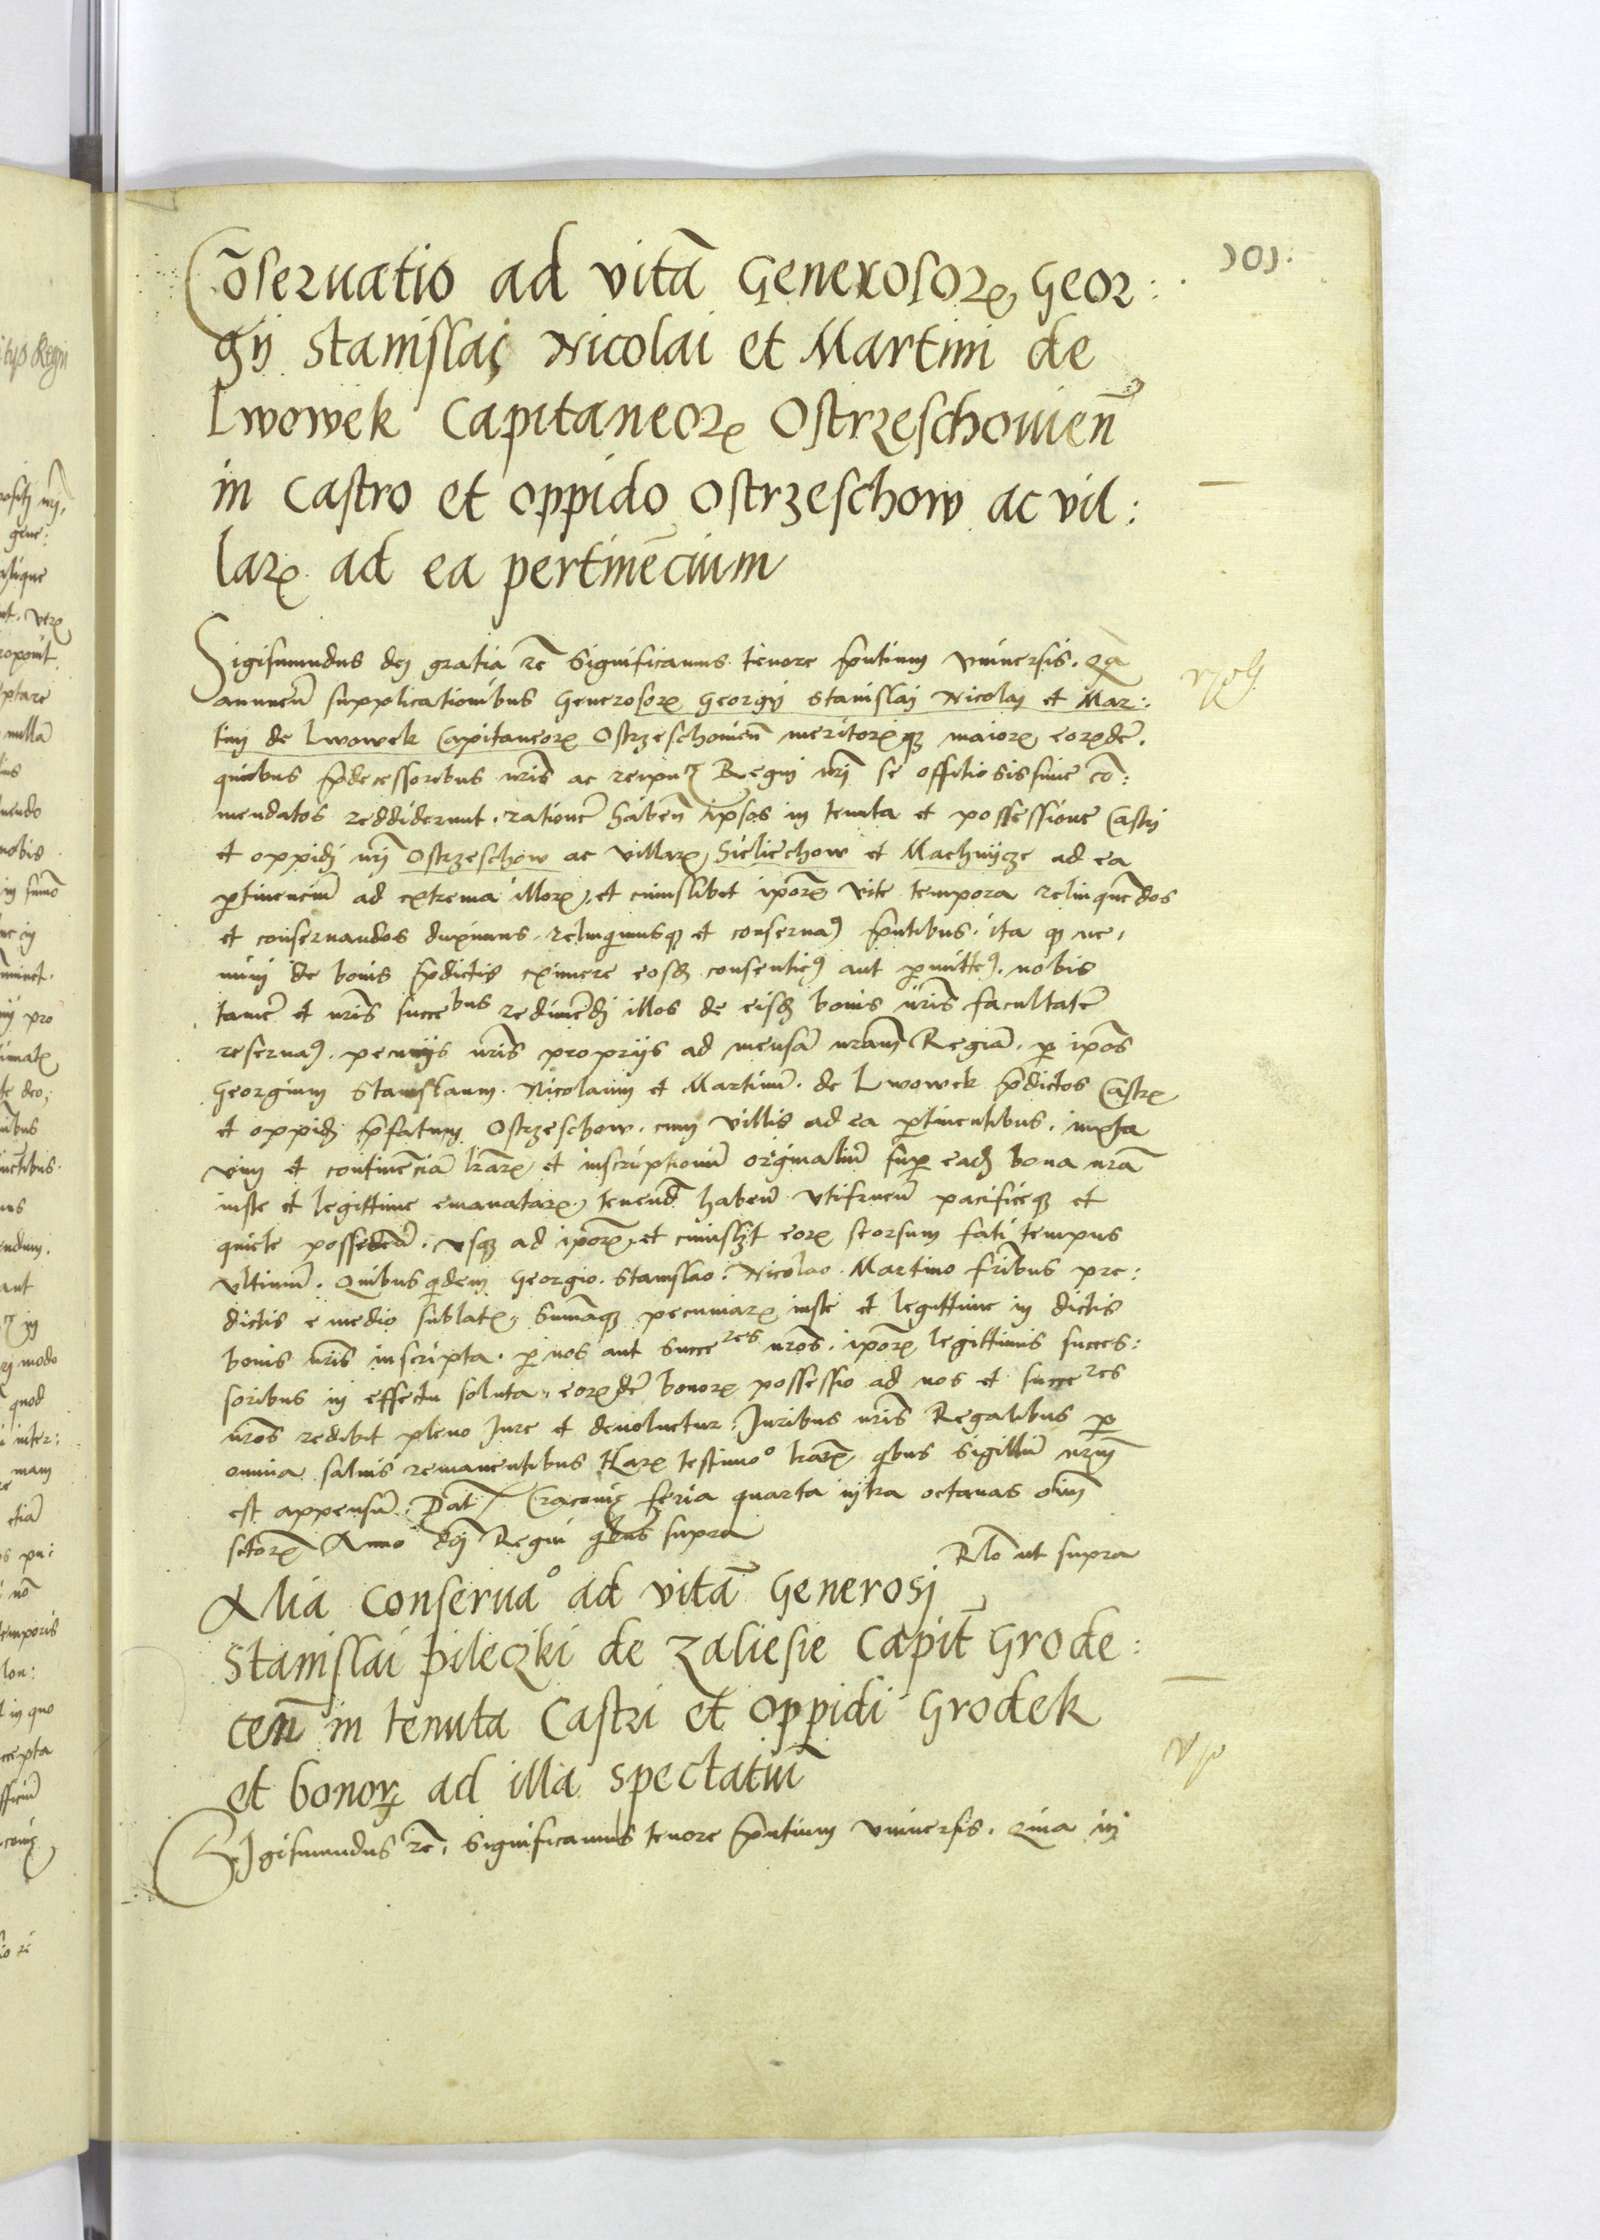 101.
Cōseruatio ad vitā Generosorꝝ Geor:
gij Stanislai Nicolai et Martini de
Lwowek Capitaneorꝝ Ostrzeschouień
in Castro et oppido Ostrzeschow ac vil:
larꝝ ad ea pertinēcium
Sigismundus dej gratia rc̄ Significamus tenore p̄ntium vniuersis. Qā
annueñ supplicationibus Generosorꝝ Georgij Stanislaj Nicolaj et Mar:
tinj de Lwowek Capitaneorꝝ Ostrzeschouień meritorꝝqꝫ maiorꝝ eorꝝdē.
quibus p̄decessoribus nr̄is ac reipu Regnj nr̄j se offitiosissime cō:
mendatos reddiderunt. rationē habeñ ipsos in tenuta et possessione Castrj
et oppidj nr̄j Ostrzeschow ac villarꝝ Sieliechow et Machnijcze ad ea
ꝑtinenciū ad extrema illorꝝ et cuiuslibet ip̄orꝝ vite tempora relinquēdos
et conseruandos duximus. relinquimusqꝫ et conseruaꝰ p̄ntibus. ita qꝫ ne,
mini de bonis p̄dictis eximere eosdꝫ consentieꝰ aut ꝑmitteꝰ. nobis
tamē et nr̄is succebus redimēdj illos de eisdꝫ bonis nr̄is facultatē
reseruaꝰ. pecunijs nr̄is proprijs ad mensā nr̄am Regiā. ꝑ ip̄os
Georgium Stanislaum. Nicolaum et Martinū. de Lwowek p̄dictos Castrꝝ
et oppidꝫ p̄fatum Ostrzeschow. cum villis ad ea ꝑtinentibus. iuxta
vim et continēciā lr̄arꝝ et inscriptionū originaliū suꝑ eadꝫ bona nr̄a
iuste et legittime emanatarꝝ tenend habeñ vtifrueñ pacificeqꝫ et
quiete possideñ. vsqꝫ ad ip̄orꝝ et cuiuslꝫt eorꝝ seorsum fati tempus
vltimū. Quibus qdem Georgio. Stanislao. Nicolao. Martino fr̄ibus pre:
dictis e medio sublatꝝ sum̄aqꝫ pecuniarꝝ iuste et legittime in dictis
bonis nr̄is inscripta. ꝑ nos aut Succeres nr̄os. ip̄orꝝ legittimis succes:
soribus in effectu soluta. eorꝝdē bonorꝝ possessio ad nos et succeres
nr̄os redibit pleno Jure et deuoluetur. Juribus nr̄is Regalibus ꝑ
omnia saluis remanentibus Harꝝ testimoo lr̄arꝝ qbus Sigillū nr̄um
est appensū. Dat Cracouię feria quarta infra octauas oīm
sctorꝝ Anno dnj Regni qbus supra
Rlō ut supra
Alia Conseruao ad vitā Generosj
Stanislai Pileczki de Zaliesie Capit̄ Grode:
ceń in tenuta Castri et oppidi Grodek
et bonorꝝ ad illa spectātiū
Sigismundus rc̄. Significamus tenore p̄ntium vniuersis. Quia in